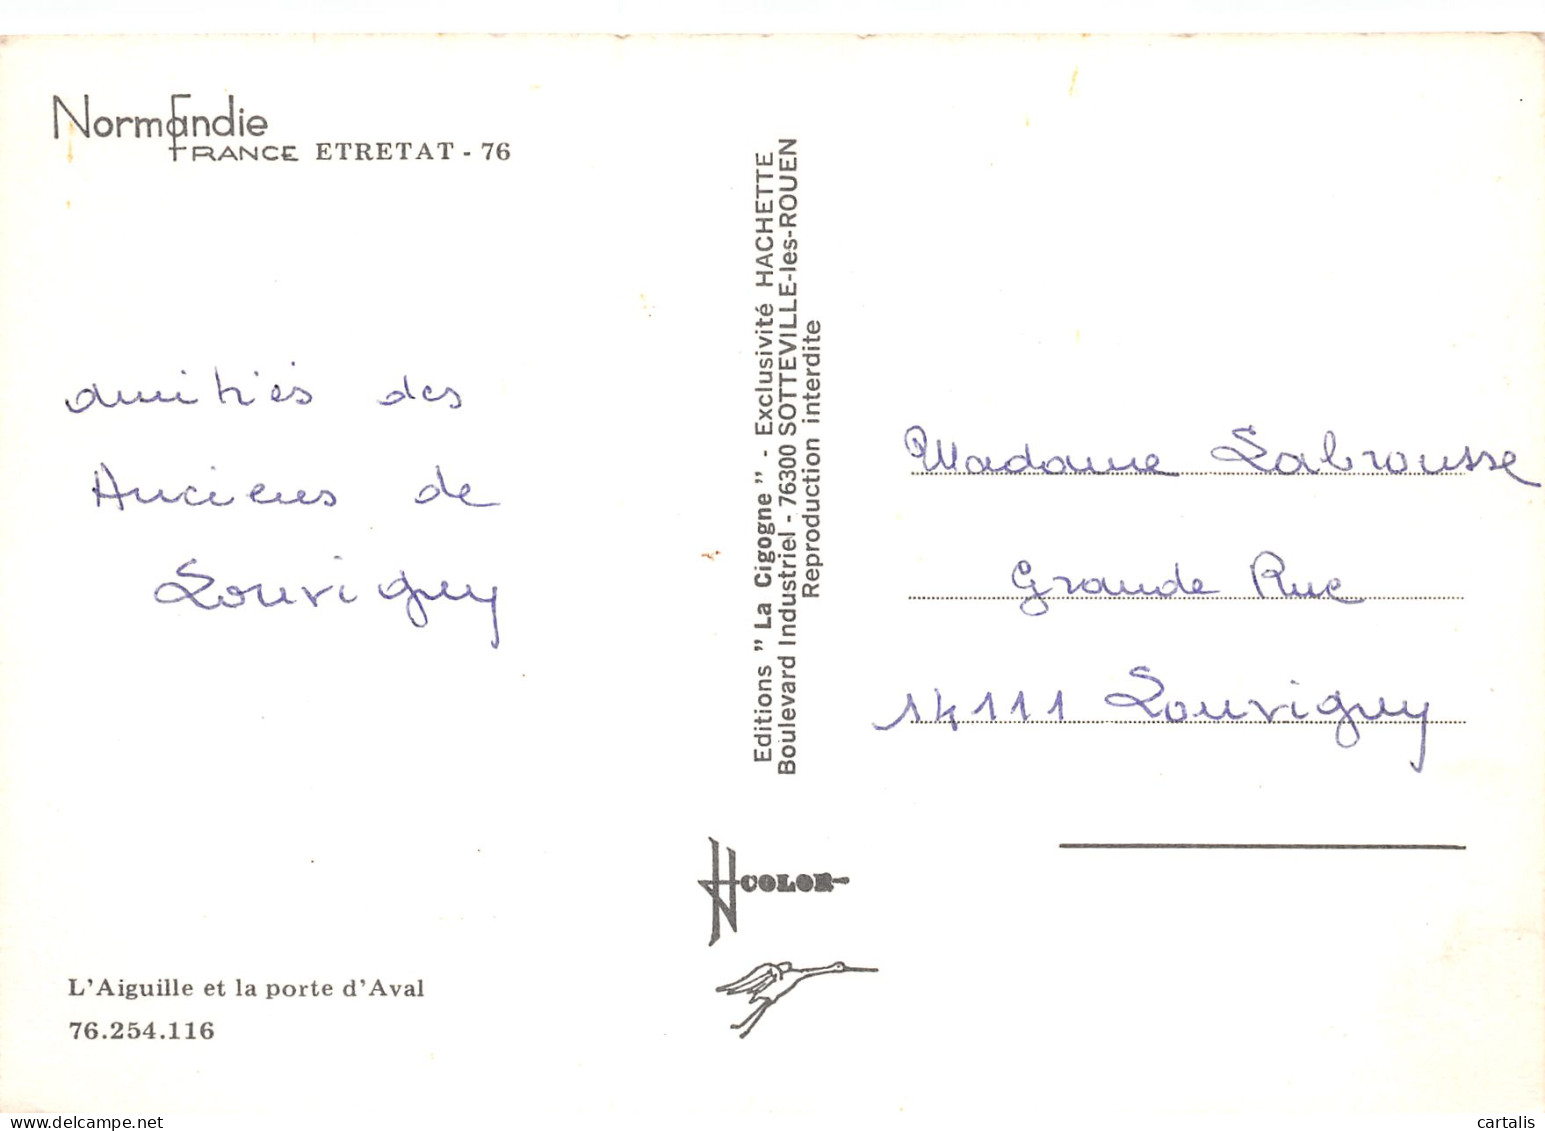 Normandie
FRANCE ETRETAT - 76
amitiés des
Anciens de
Louvigny
L'Aiguille et la porte d'Aval
76.254.116
Editions " La Cigogne " - Exclusivité HACHETTE
Boulevard Industriel - 76300 SOTTEVILLE-les-ROUEN
Reproduction interdite
COLOR
Madame Labrousse
Grande Rue
14111 Louvigny
delcampe.net
cartalis